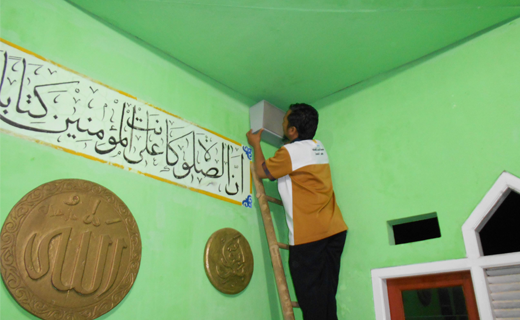 ان الصلوة كانت على المؤمنين كتابا
الله